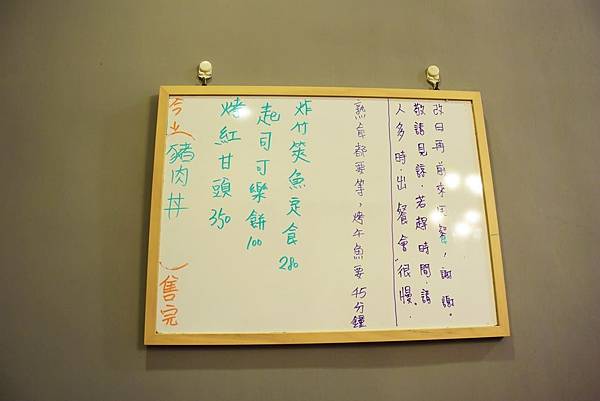 人多時.出餐會"很慢".
敬請見諒.若趕時間.請
改日再前來用餐,謝謝。
熟食都要等,烤午魚要45分鐘
炸竹筴魚定食 280
起司可樂餅 100
烤紅甘頭 350
今天(豬肉丼)售完